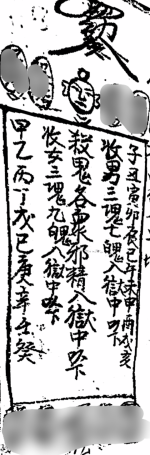 子丑寅卯辰巳午未申酉戌亥
收男三魂七魄入獄中吟
殺鬼各眾邪精入獄中吟
收女三魂九魄入獄中吟
甲乙丙丁戊己庚辛壬癸